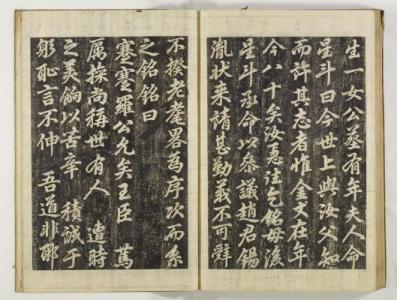 生一女公墓有年夫人命
星斗曰今世上與汝父知
而許其志者惟金文在年
今八十矣汝亟往乞銘毋後
星斗承命以參議趙君錫
胤狀来請甚勤義不可辭
不揆老耄畧為序次而系
之銘銘曰
蹇蹇羅公允矣王臣 篤
厲操尚稱世有人 遭時
之美餉以苦辛 積誠于
彤 言不仲 吾道非耶